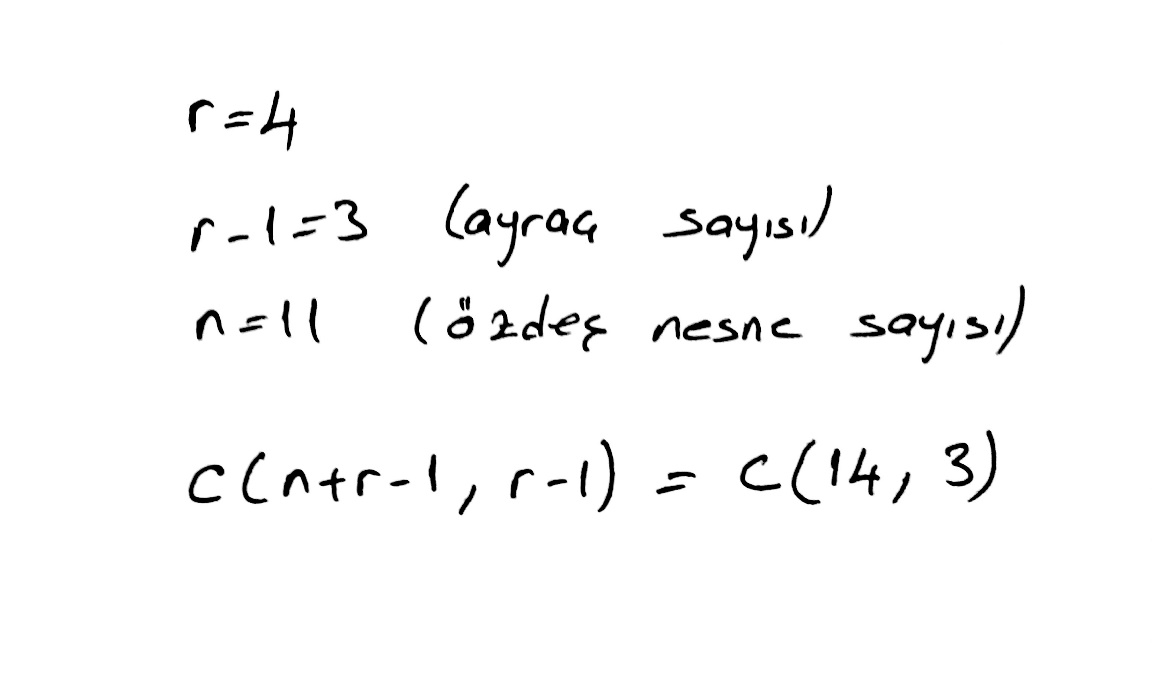 r=4
r-1=3 (ayraç sayısı)
n=11 (özdeş nesne sayısı)
C(n+r-1, r-1) = C(14, 3)